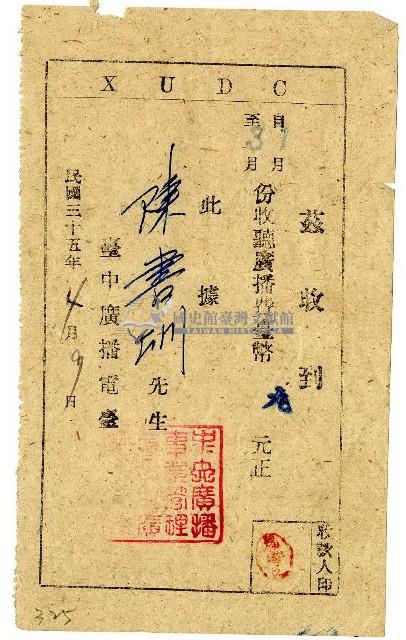 X U D C
茲收到
自1月
至3月
份收聽廣播費臺幣 元正
此據
陳書訓 先生
臺中廣播電臺
民國三十五年4月9日
收款人印
中央廣播
事業管理
國史館臺灣文獻館
TAIWAN HISTORICA
325